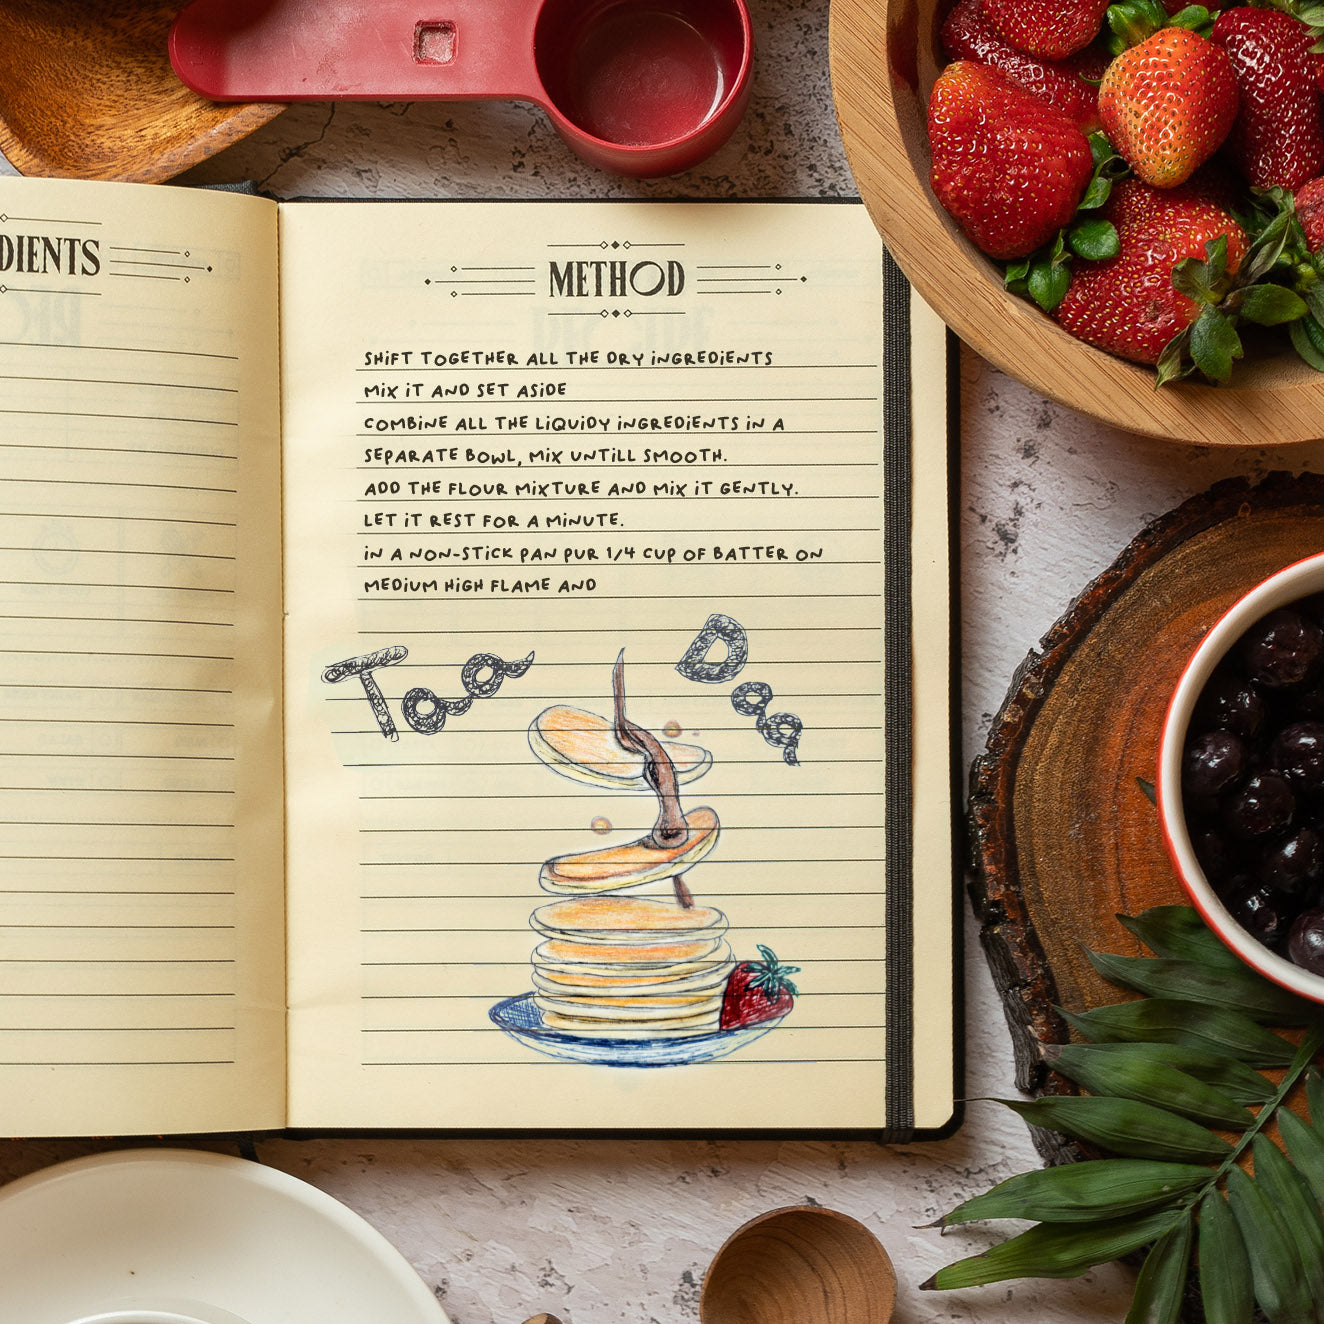 DIENTS
METHOD
SHiFT TOGETHER ALL THE DRY iNGREDiENTS
MiX iT AND SET ASiDE
COMBiNE ALL THE LiQUiDY iNGREDiENTS iN A
SEPARATE BOWL, MiX UNTiLL SMOOTH.
ADD THE FLOUR MiXTURE AND MiX iT GENTLY.
LET iT REST FOR A MiNUTE.
iN A NON-STiCK PAN PUR 1/4 CUP OF BATTER ON
MEDiUM HiGH FLAME AND
Taa Daa